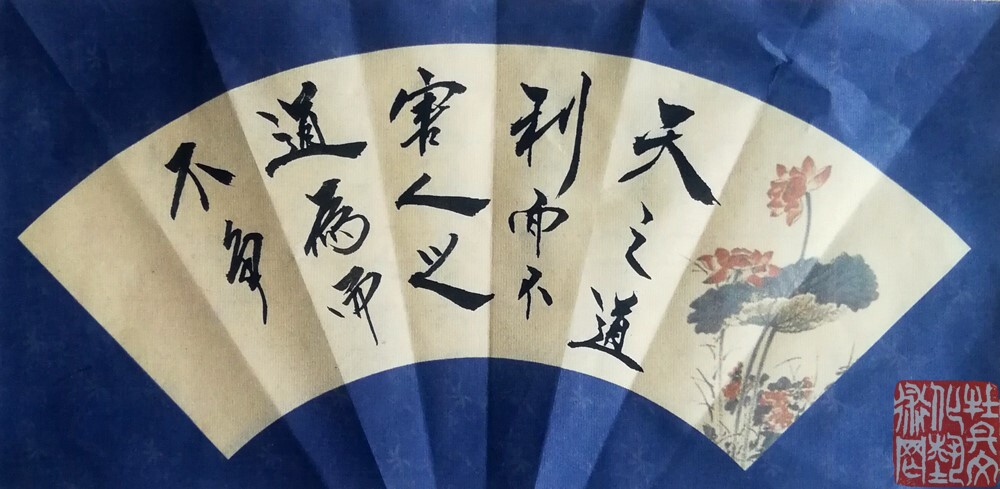 天之道
利而不
害人之
道為而
不争